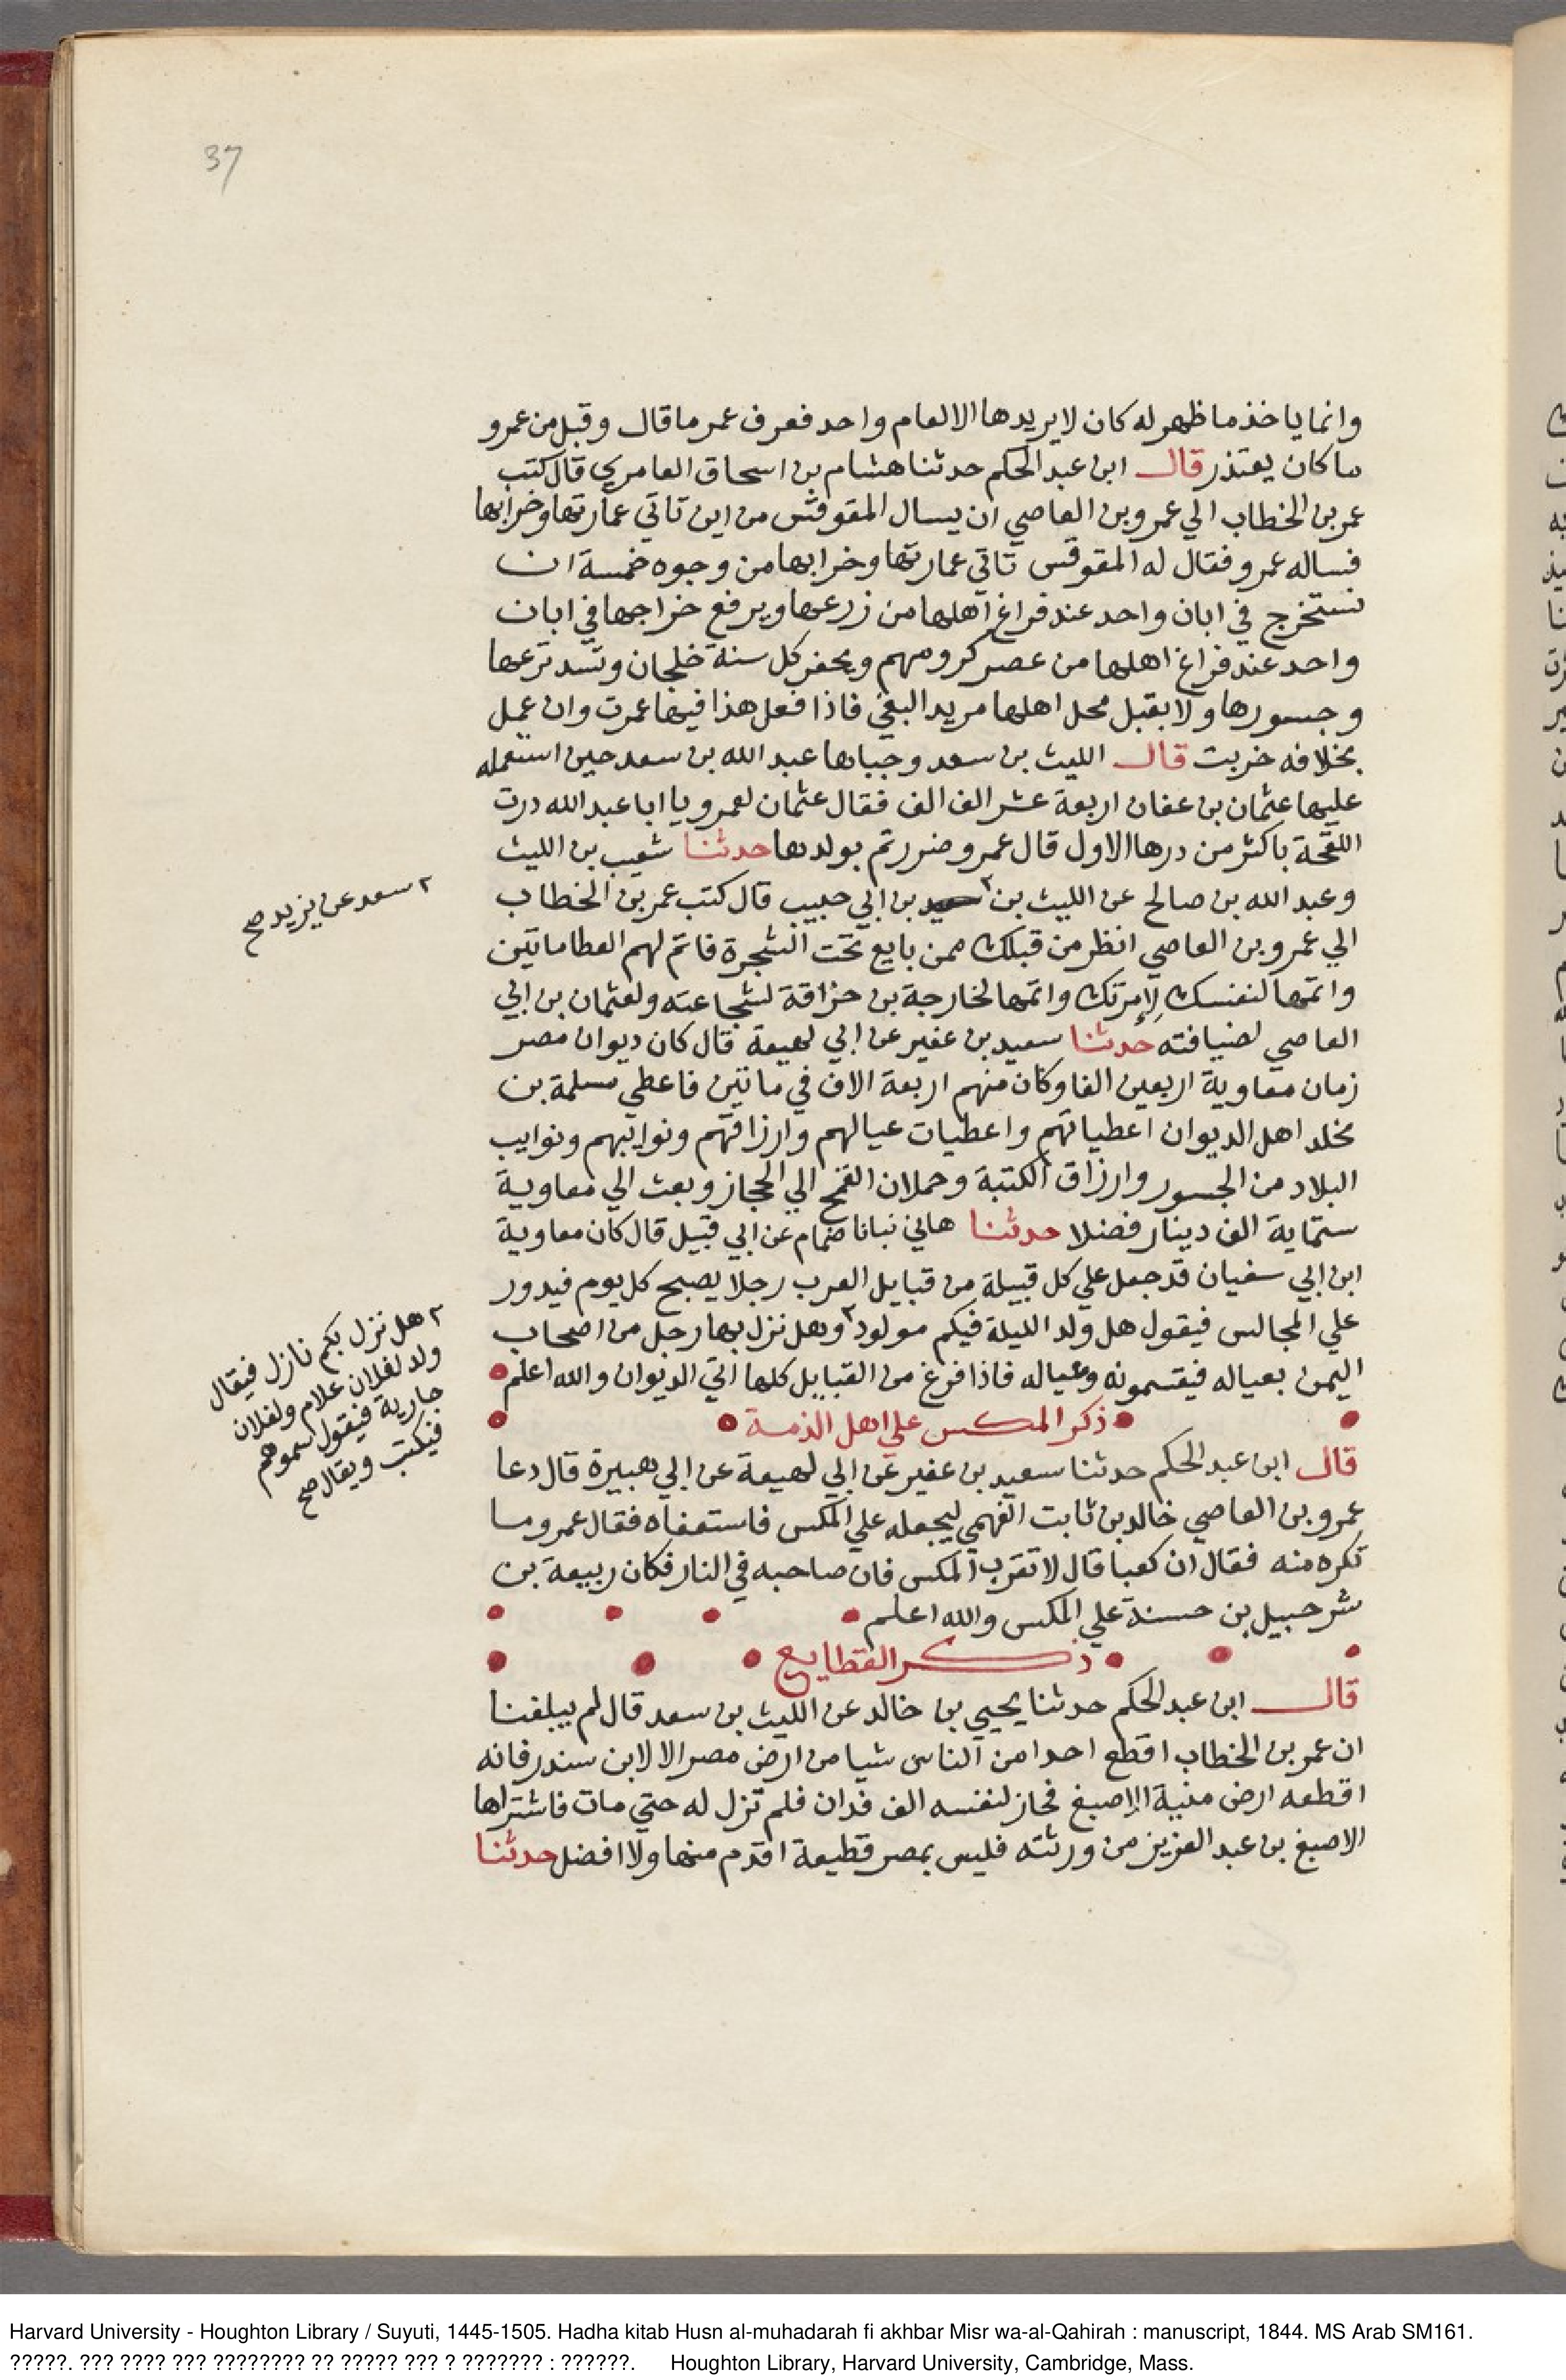 37
وانما ياخذ ما ظهر له كان لا يريدها الا لعام واحد فعرف عمر ما قال وقبل من عمرو
ما كان يعتذر قال ابن عبد الحكم حدثنا هشام بن اسحاق العامري قال كتب
عمر بن الخطاب الي عمرو بن العاصي ان يسال المقوقس من اين تاتي عمارتها وخرابها
فساله عمرو فقال له المقوقس تاتي عمارتها وخرابها من وجوه خمسة ان
نستخرج في ابان واحد عند فراغ اهلها من زرعها ويرفع خراجها في ابان
واحد عند فراغ اهلها من عصر كرومهم ويحفر كل سنة خلجان وتسد ترعها
وجسورها ولا يقبل محل اهلها مريد البغي فاذا فعل هذا فيها عمرت وان عمل
بخلافه خربت قال الليث بن سعد وجباها عبد الله بن سعد حين استعمله
عليها عثمان بن عفان اربعة عشر الف الف فقال عثمان لعمرو يا ابا عبد الله درت
اللقحة باكثر من درها الاول قال عمرو ضررتم بولدها حدثنا شعيب بن الليث
وعبد الله بن صالح عن الليث بن ٢ بن ابي حبيب قال كتب عمر بن الخطاب
٢ سعد عن يزيد صح
الي عمرو بن العاصي انظر من قبلك ممن بايع تحت الشجرة فاتم لهم العطا ماتين
واتمها لنفسك لإمرتك واتمها لخارجة بن حزاقة لشجاعته ولعثمان بن ابي
العاصي لضيافته حدثنا سعيد بن عفير عن ابي لهيعة قال كان ديوان مصر
زمان معاوية اربعين الفا وكان منهم اربعة الاف في ماتين فاعطي مسلمة بن
مخلد اهل الديوان اعطياتهم واعطيات عيالهم وارزاقهم ونوايبهم ونوايب
البلاد من الجسور وارزاق الكتبة وحملان القمح الي الحجاز وبعث الي معاوية
ستماية الف دينار فضلا حدثنا هاني نبانا ضمام عن ابي قبيل قال كان معاوية
ابن ابي سفيان قد جعل علي كل قبيلة من قبايل العرب رجلا يصبح كل يوم فيدور
علي المجالس فيقول هل ولد الليلة فيكم مولود ٢ وهل نزل بها رجل من اصحاب
٢ هل نزل بكم نازل فيقال
ولد لفلان غلام ولفلان
جارية فيقول سموهم
فيكتب ويقال صح
اليمن بعياله فيقسمونه وعياله فاذا فرغ من القبايل كلها اتي الديوان والله اعلم
ذكر المكس علي اهل الذمة
قال ابن عبد الحكم حدثنا سعيد بن عفير عن ابي لهيعة عن ابي هبيرة قال دعا
عمرو بن العاصي خالد بن ثابت الفهمي ليجعله علي المكس فاستعفاه فقال عمرو ما
تكره منه فقال ان كعبا قال لا تقرب المكس فان صاحبه في النار فكان ربيعة بن
شرحبيل بن حسنة علي المكس والله اعلم
ذكر القطايع
قال ابن عبد الحكم حدثنا يحيي بن خالد عن الليث بن سعد قال لم يبلغنا
ان عمر بن الخطاب اقطع احدا من الناس شيا من ارض مصر الا لابن سندر فانه
اقطعه ارض منية الاصبغ فحاز لنفسه الف فدان فلم تزل له حتي مات فاشتراها
الاصبغ بن عبد العزيز من ورثته فليس بمصر قطيعة اقدم منها ولا افضل حدثنا
Harvard University - Houghton Library / Suyuti, 1445-1505. Hadha kitab Husn al-muhadarah fi akhbar Misr wa-al-Qahirah : manuscript, 1844. MS Arab SM161.
?????. ??? ???? ??? ???????? ?? ????? ??? ? ??????? : ??????. Houghton Library, Harvard University, Cambridge, Mass.